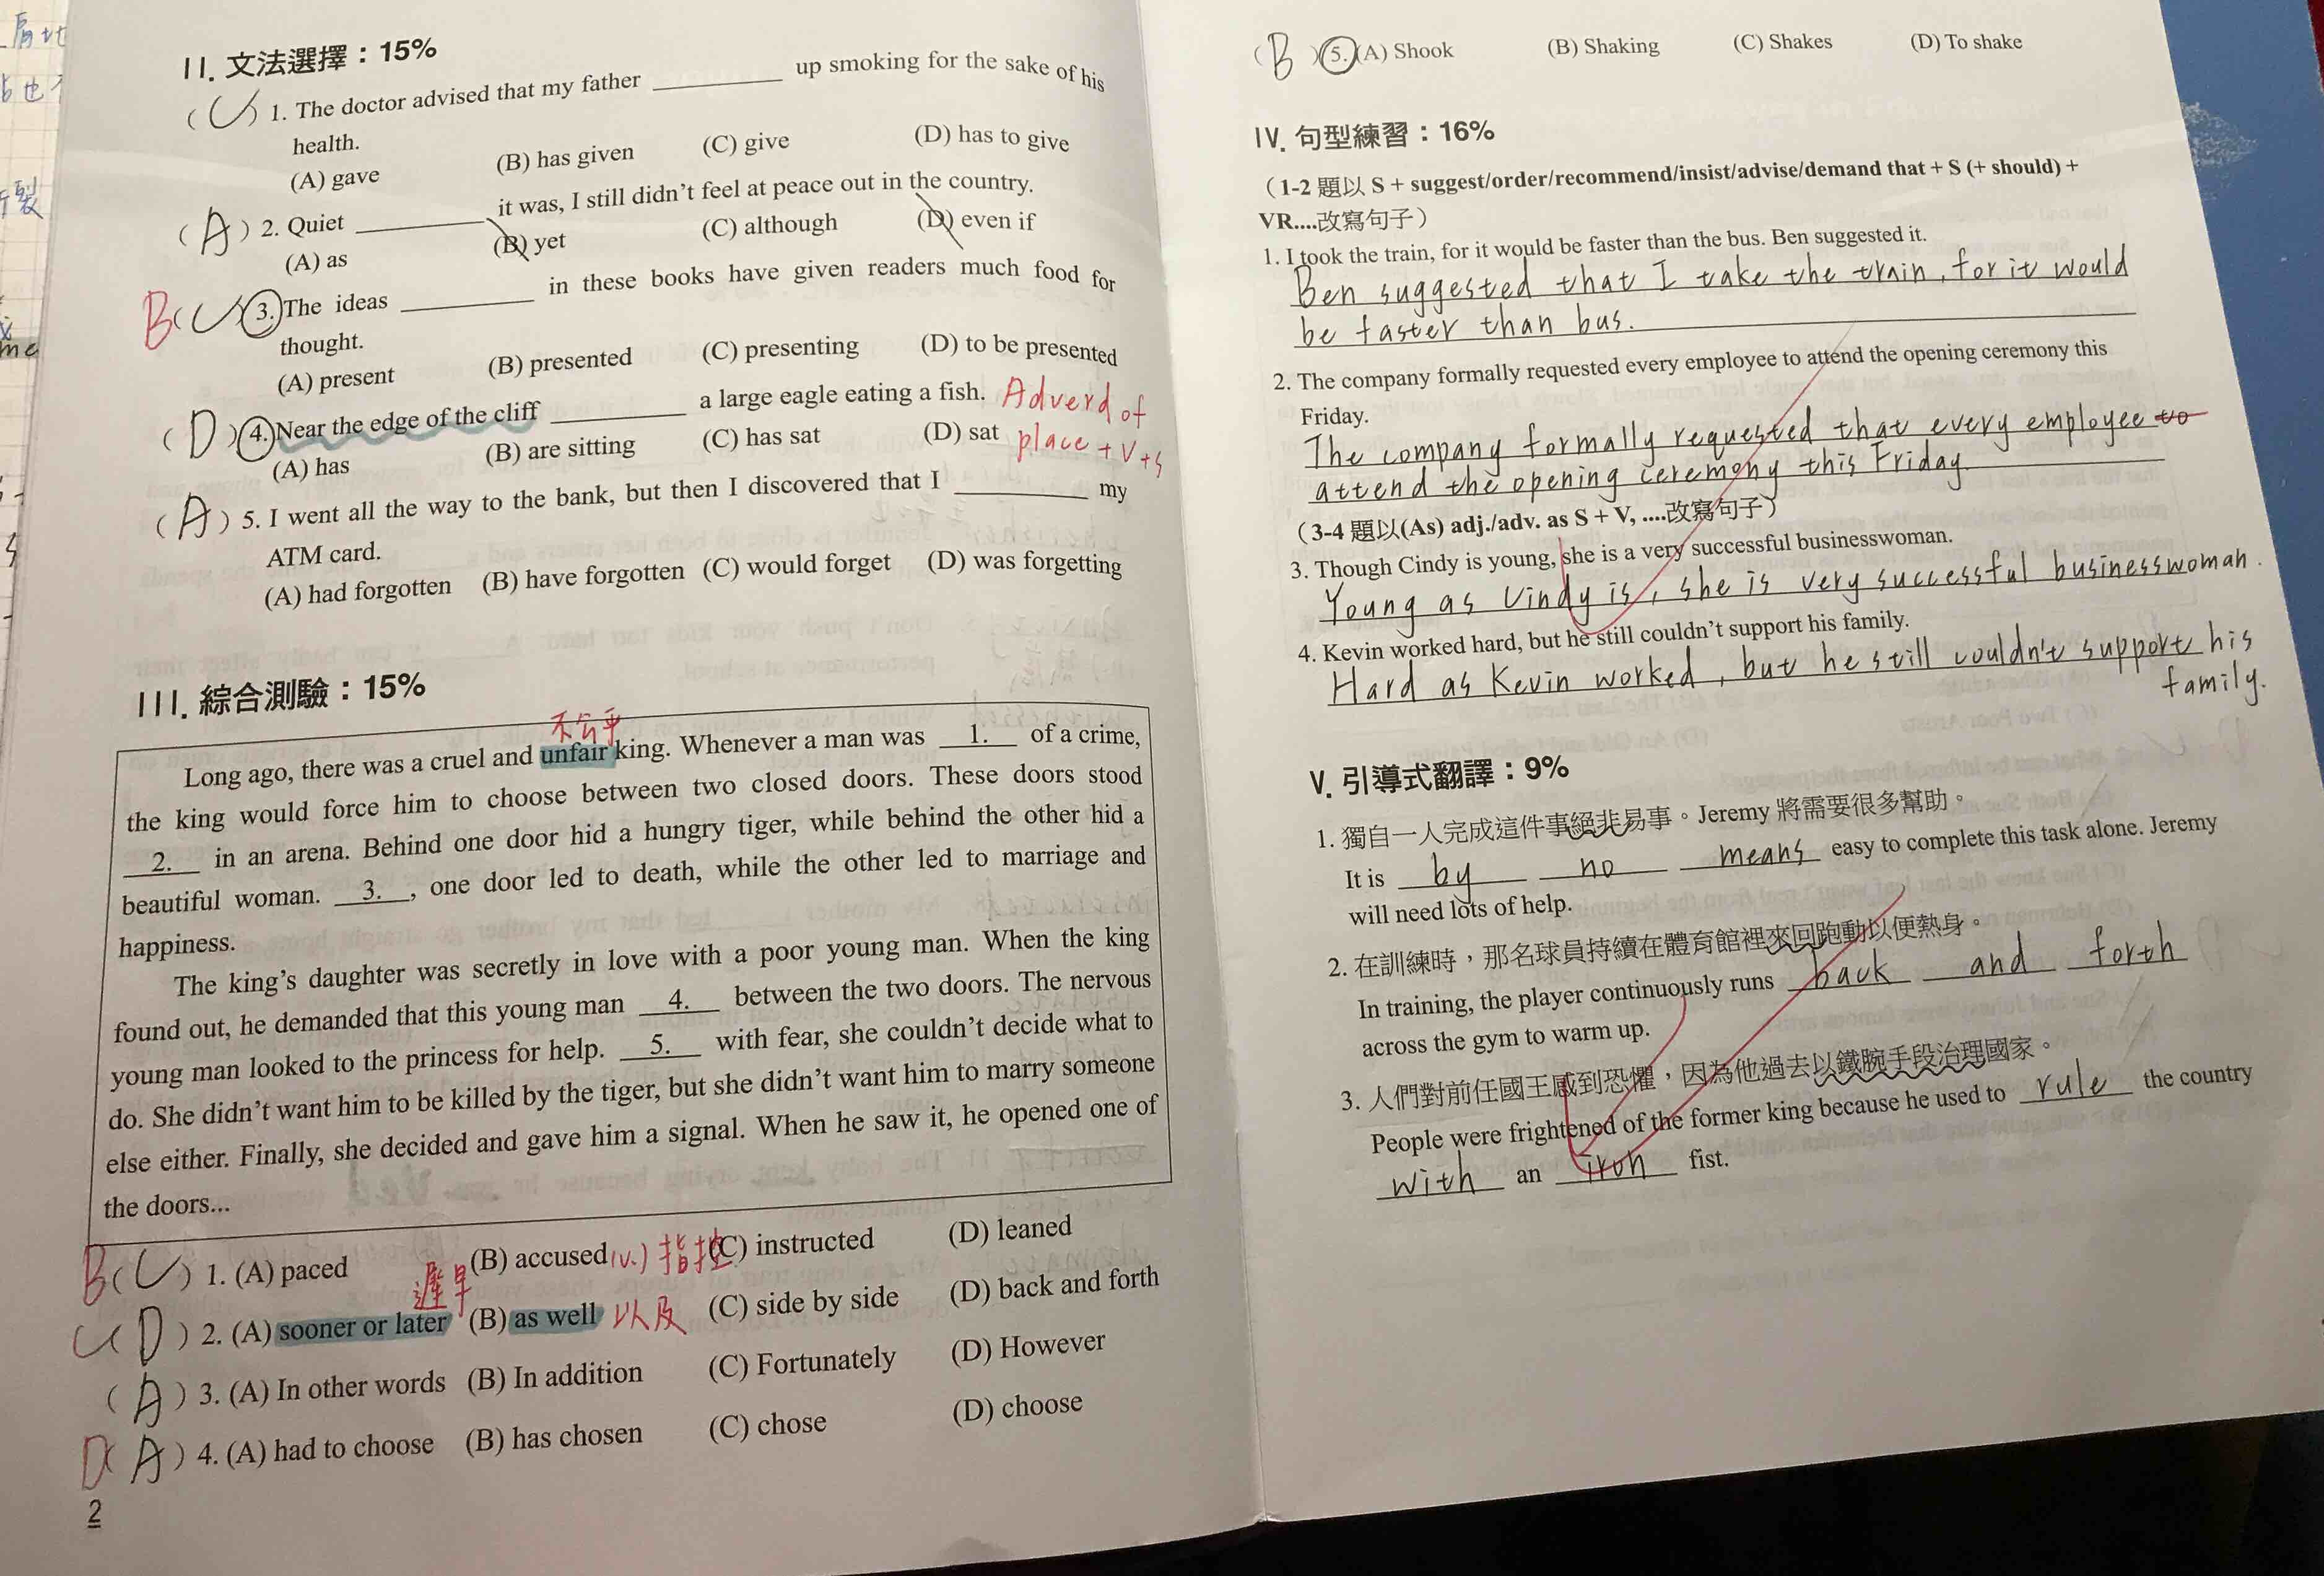 II. 文法選擇：15%
( C ) 1. The doctor advised that my father ________ up smoking for the sake of his
health.
(A) gave (B) has given (C) give (D) has to give
( A ) 2. Quiet ________ it was, I still didn't feel at peace out in the country.
(A) as (B) yet (C) although (D) even if
B ( C ) 3. The ideas ________ in these books have given readers much food for
thought.
(A) present (B) presented (C) presenting (D) to be presented
( D ) 4. Near the edge of the cliff ________ a large eagle eating a fish. Adverd of
(A) has (B) are sitting (C) has sat (D) sat place + V + S
( A ) 5. I went all the way to the bank, but then I discovered that I ________ my
ATM card.
(A) had forgotten (B) have forgotten (C) would forget (D) was forgetting
III. 綜合測驗：15%
不公平
Long ago, there was a cruel and unfair king. Whenever a man was 1. of a crime,
the king would force him to choose between two closed doors. These doors stood
2. in an arena. Behind one door hid a hungry tiger, while behind the other hid a
beautiful woman. 3. , one door led to death, while the other led to marriage and
happiness.
The king's daughter was secretly in love with a poor young man. When the king
found out, he demanded that this young man 4. between the two doors. The nervous
young man looked to the princess for help. 5. with fear, she couldn't decide what to
do. She didn't want him to be killed by the tiger, but she didn't want him to marry someone
else either. Finally, she decided and gave him a signal. When he saw it, he opened one of
the doors...
B ( C ) 1. (A) paced (B) accused (v.) 指控 (C) instructed (D) leaned
遲早
C ( D ) 2. (A) sooner or later (B) as well 以及 (C) side by side (D) back and forth
( A ) 3. (A) In other words (B) In addition (C) Fortunately (D) However
D ( A ) 4. (A) had to choose (B) has chosen (C) chose (D) choose
2
( B ) 5. (A) Shook (B) Shaking (C) Shakes (D) To shake
IV. 句型練習：16%
（1-2 題以 S + suggest/order/recommend/insist/advise/demand that + S (+ should) +
VR....改寫句子）
1. I took the train, for it would be faster than the bus. Ben suggested it.
Ben suggested that I take the train, for it would
be faster than bus.
2. The company formally requested every employee to attend the opening ceremony this
Friday.
The company formally requested that every employee to
attend the opening ceremony this Friday.
（3-4 題以(As) adj./adv. as S + V, ....改寫句子）
3. Though Cindy is young, she is a very successful businesswoman.
Young as Cindy is, she is very successful businesswoman.
4. Kevin worked hard, but he still couldn't support his family.
Hard as Kevin worked, but he still couldn't support his
family.
V. 引導式翻譯：9%
1. 獨自一人完成這件事絕非易事。Jeremy 將需要很多幫助。
It is by no means easy to complete this task alone. Jeremy
will need lots of help.
2. 在訓練時，那名球員持續在體育館裡來回跑動以便熱身。
In training, the player continuously runs back and forth
across the gym to warm up.
3. 人們對前任國王感到恐懼，因為他過去以鐵腕手段治理國家。
People were frightened of the former king because he used to rule the country
with an iron fist.